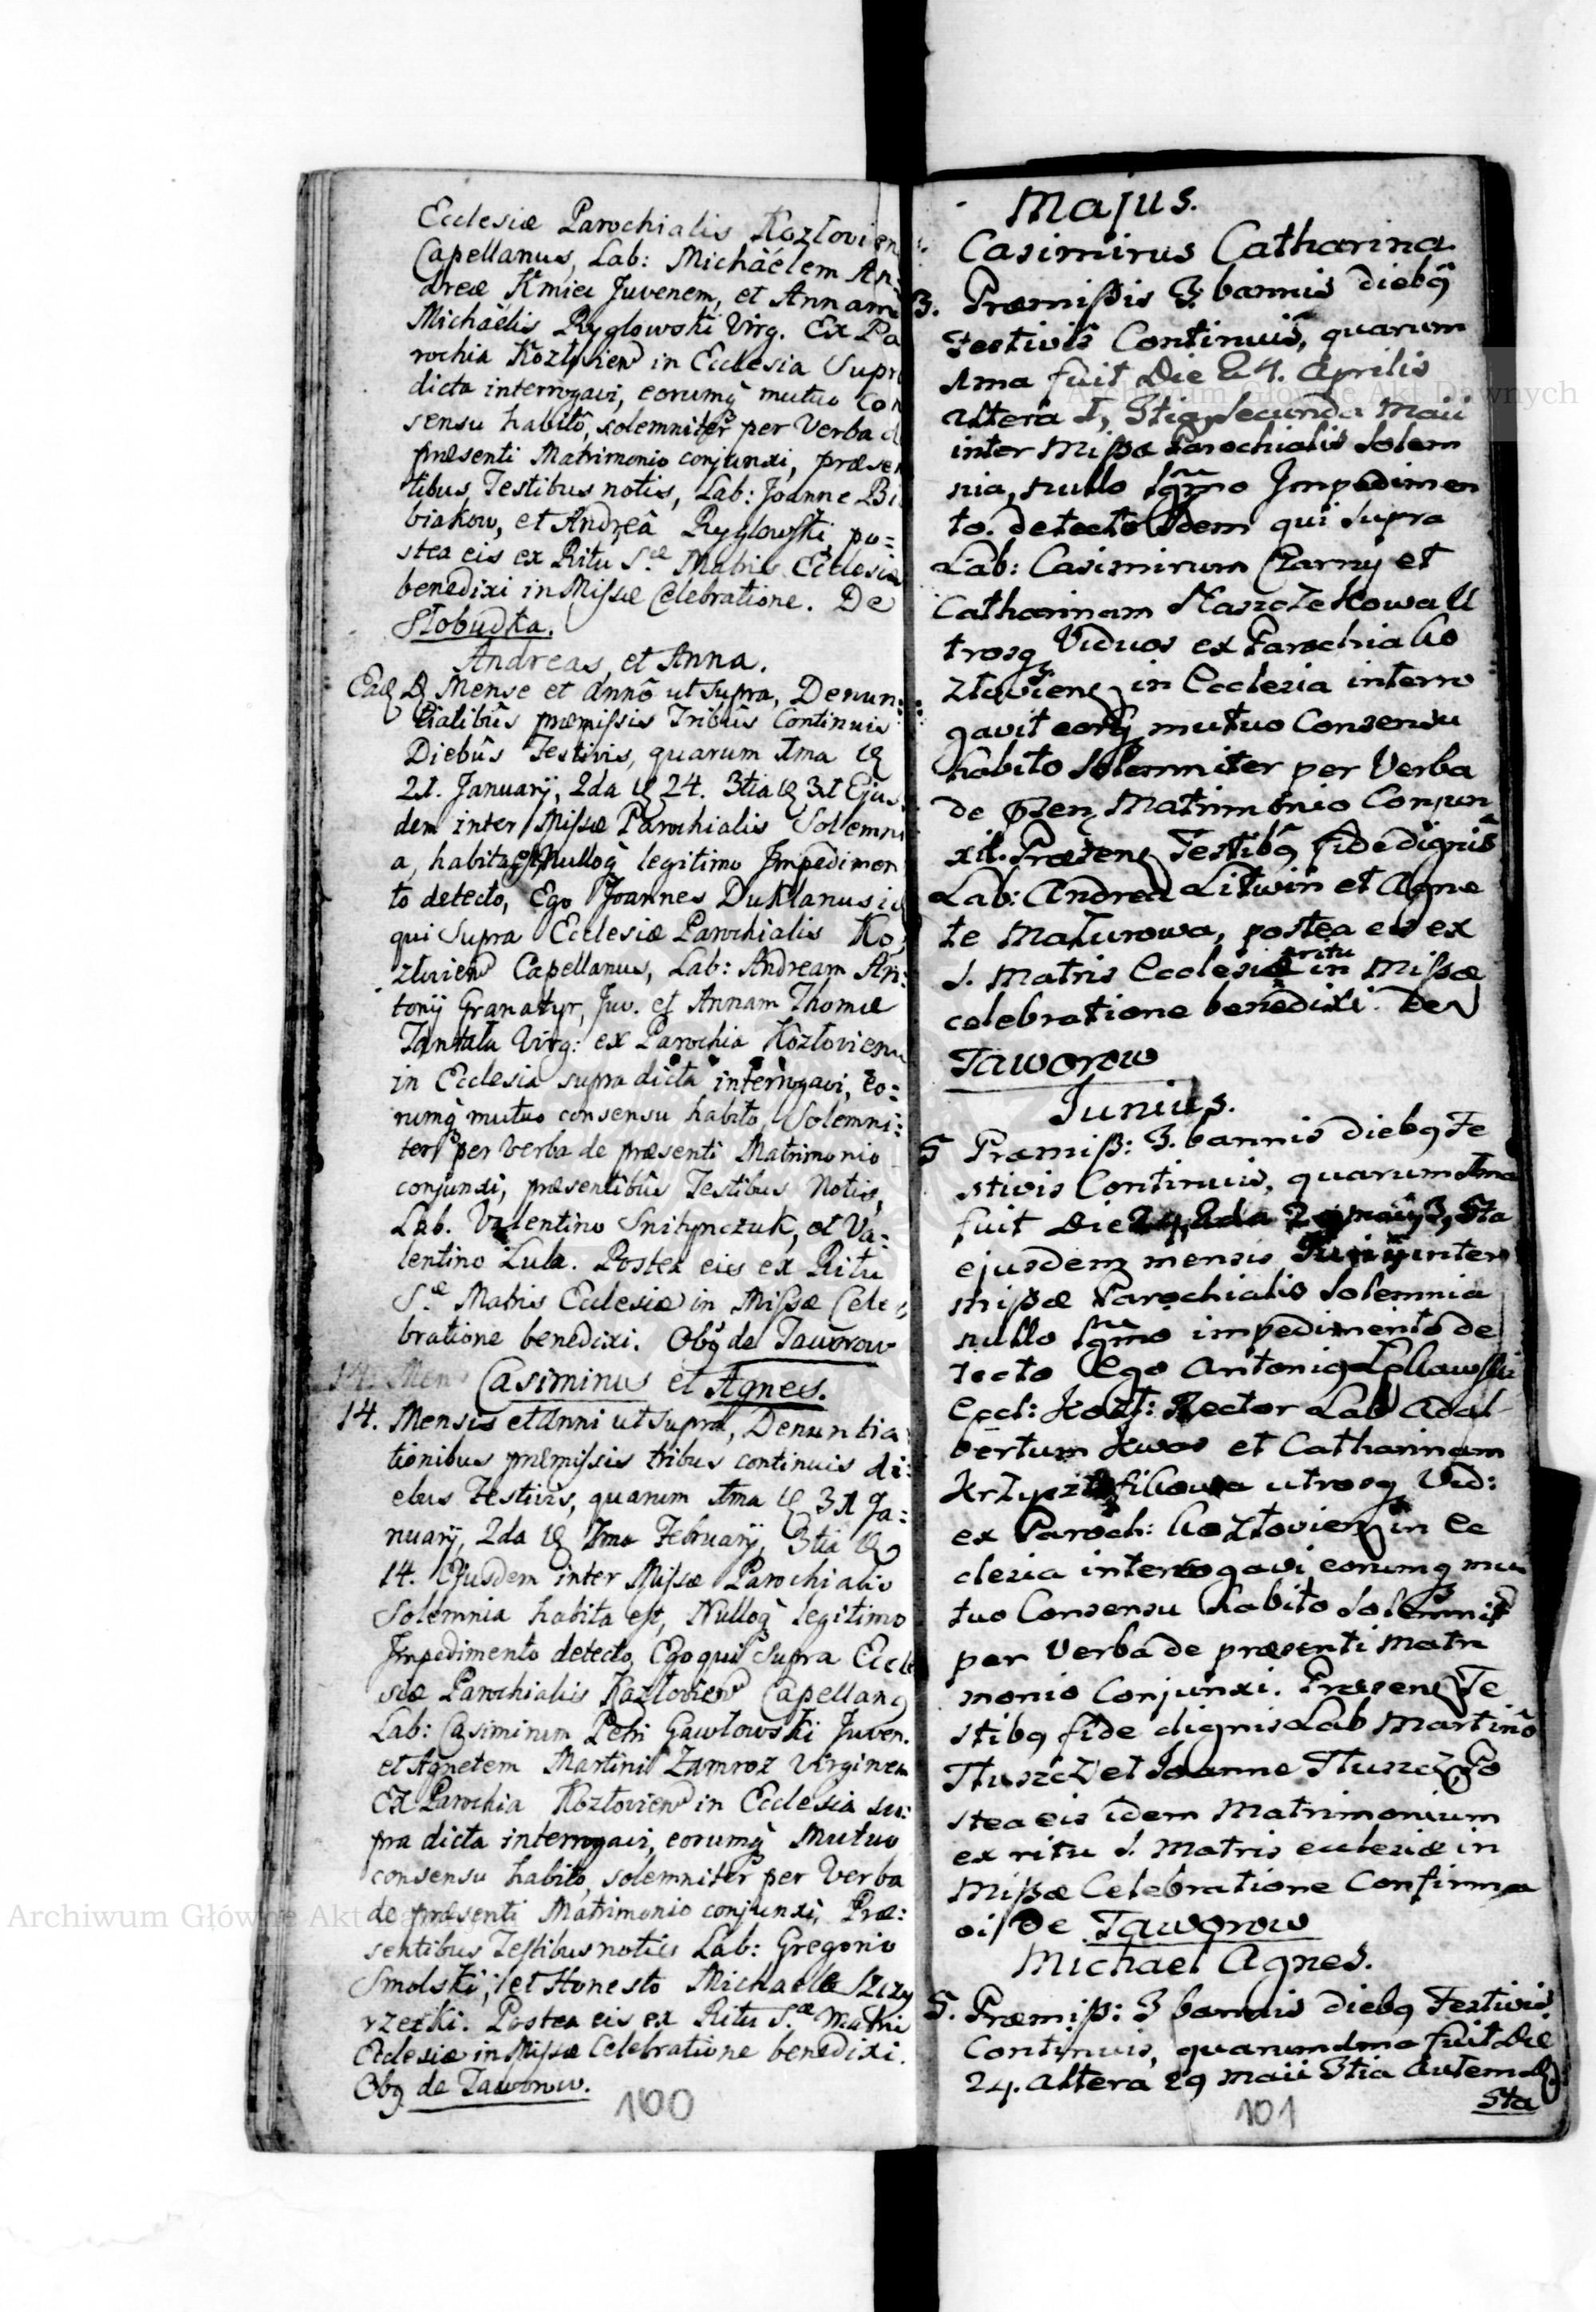 Ecclesiæ Parochialis Kozlovien
Capellanus, Lab: Michäélem An=
dreæ Kmieć Juvenem, et Annam
Michäelis Ryglowski Virg. Ex Pa
rochia Kozłovien in Ecclesia Supra
dicta interrogavi, eorumq̃ mutuo Con
sensu habito, solemniter per Verba d
præsenti Matrimonio conjunxi, præsen
tibus Testibus notis, Lab: Joanne Bi
biakow, et Andrea Ryglowski po=
stea eis ex Ritu S.æ Matris Ecclesiæ
benedixi in Missæ Celebratione. De
Słobudka.
Andreas, et Anna.
Mense et Annô ut Supra, Denun:
tialibus præmissis Tribus Continuis
Diebûs Festivis, quarum 1ma
21. Januarÿ, 2da 24. 3tia 31 Ejus
dem inter Missæ Parochialis Solemni
a, habita est Nulloq̃ legitimo Impedimen
to detecto, Ego Joannes Duklanus
qui Supra Ecclesiæ Parochialis Ko
złovien Capellanus, Lab: Andream An:
tonÿ Granatyr, Juv. et Annam Thomæ
Tantała Virg: ex Parochia Kozłovien
in Ecclesia supra dicta interrogavi, eo=
rumq̃ mutuo consensu habito, Solemni:
ter per Verba de præsenti Matrimonio
conjunxi, præsentibûs Testibus Notis,
Lab. Valentino Snihynczuk, et Va:
lentino Lula. Postea eis ex Ritu
S.æ Matris Ecclesiæ in Missæ Cele
bratione benedixi. Obq̃ de Taworow
Casimirus et Agnes.
14. Mensis et Anni ut Supra, Denuntia
tionibus præmissis tribus continuis di:
ebus Festivis, quarum 1ma 31 Ja:
nuarÿ, 2da 7ma Februarÿ, 3tia
14. Ejusdem inter Missæ Parochialis
Solemnia habita est, Nulloq̃ legitimo
Impedimento detecto, Ego qui Supra Eccle
siæ Parochialis Kozłovien Capellanq
Lab: Casimirum Petri Gawłowski Juven.
et Agnetem Martini Zamroz Virginem
Ex Parochia Kozłovien in Ecclesia su:
pra dicta interrogavi, eorumq̃ Mutuo
consensu habito, solemniter per Verba
de præsenti Matrimonio conjunxi, Præ:
sentibus Testibus notis Lab: Gregorio
Smolski, et Honesto Michaele
Postea eis ex Ritu S.æ Matris
Ecclesiæ in Missæ Celebratione benedixi.
Obq de Taworow.
100
Majus.
Casimirus Catharina
3. Præmissis 3 bannis diebq̃
Festivis Continuis, quarum
1ma fuit Die 24. Aprilis
altera 1, 3tia Secunda Maii
inter Missæ Parochialis Solem
nia, nullo lgt̃mo Impedimen
to. detecto Idem qui supra
Lab: Casimirum Czarny et
Catharinam U
trosq Viduos ex Parochia Ko
złoviens in Ecclesia interro
gavit eorq mutuo Consensu
habito Solemniter per Verba
de Præsen Matrimonio Conjun
xit. Præsens Testibq̃ fide dignis
Lab: Andrea Litwin et Agne
te Maturowa, postea eis ex
ritu
S. Matris Ecclesiæ in Missæ
celebratione benedixi. De
Taworow
Junius.
5 Præmiss: 3. bannis diebq Fe
stivis Continuis, quarum 1ma
fuit Die 24, 2da 29 maij 3, 5ta
ejusdem mensis Junij inter
Missæ Parochialis Solemnia
nullo lgt̃mo impedimento de
tecto Ego Antoniq
Eccl: Kozł: Rector Lab Adal
bertum Kwas et Catharinam
utrosq Vid:
ex Paroch: Kozłovien in Ec
clesia interrogavi eorumq mu
tuo Consensu habito Solemnit
per Verba de præsenti Matri
monio Conjunxi. Præsens Te
stibq fide dignis Lab Martino
Tłuszcz et Joanne Tłuszcz, Po
stea eis idem Matrimonium
ex ritu S. Matris ecclesiæ in
Missæ Celebratione Confirma
vi De Taworow
Michael Agnes.
5. Præmiss: 3 bannis diebq Festivis
Continuis, quarum 1ma fuit Die
24. altera 29 maii 3tia autem
5ta
101
Archiwum Główne Akt Dawnych
Archiwum Główne Akt